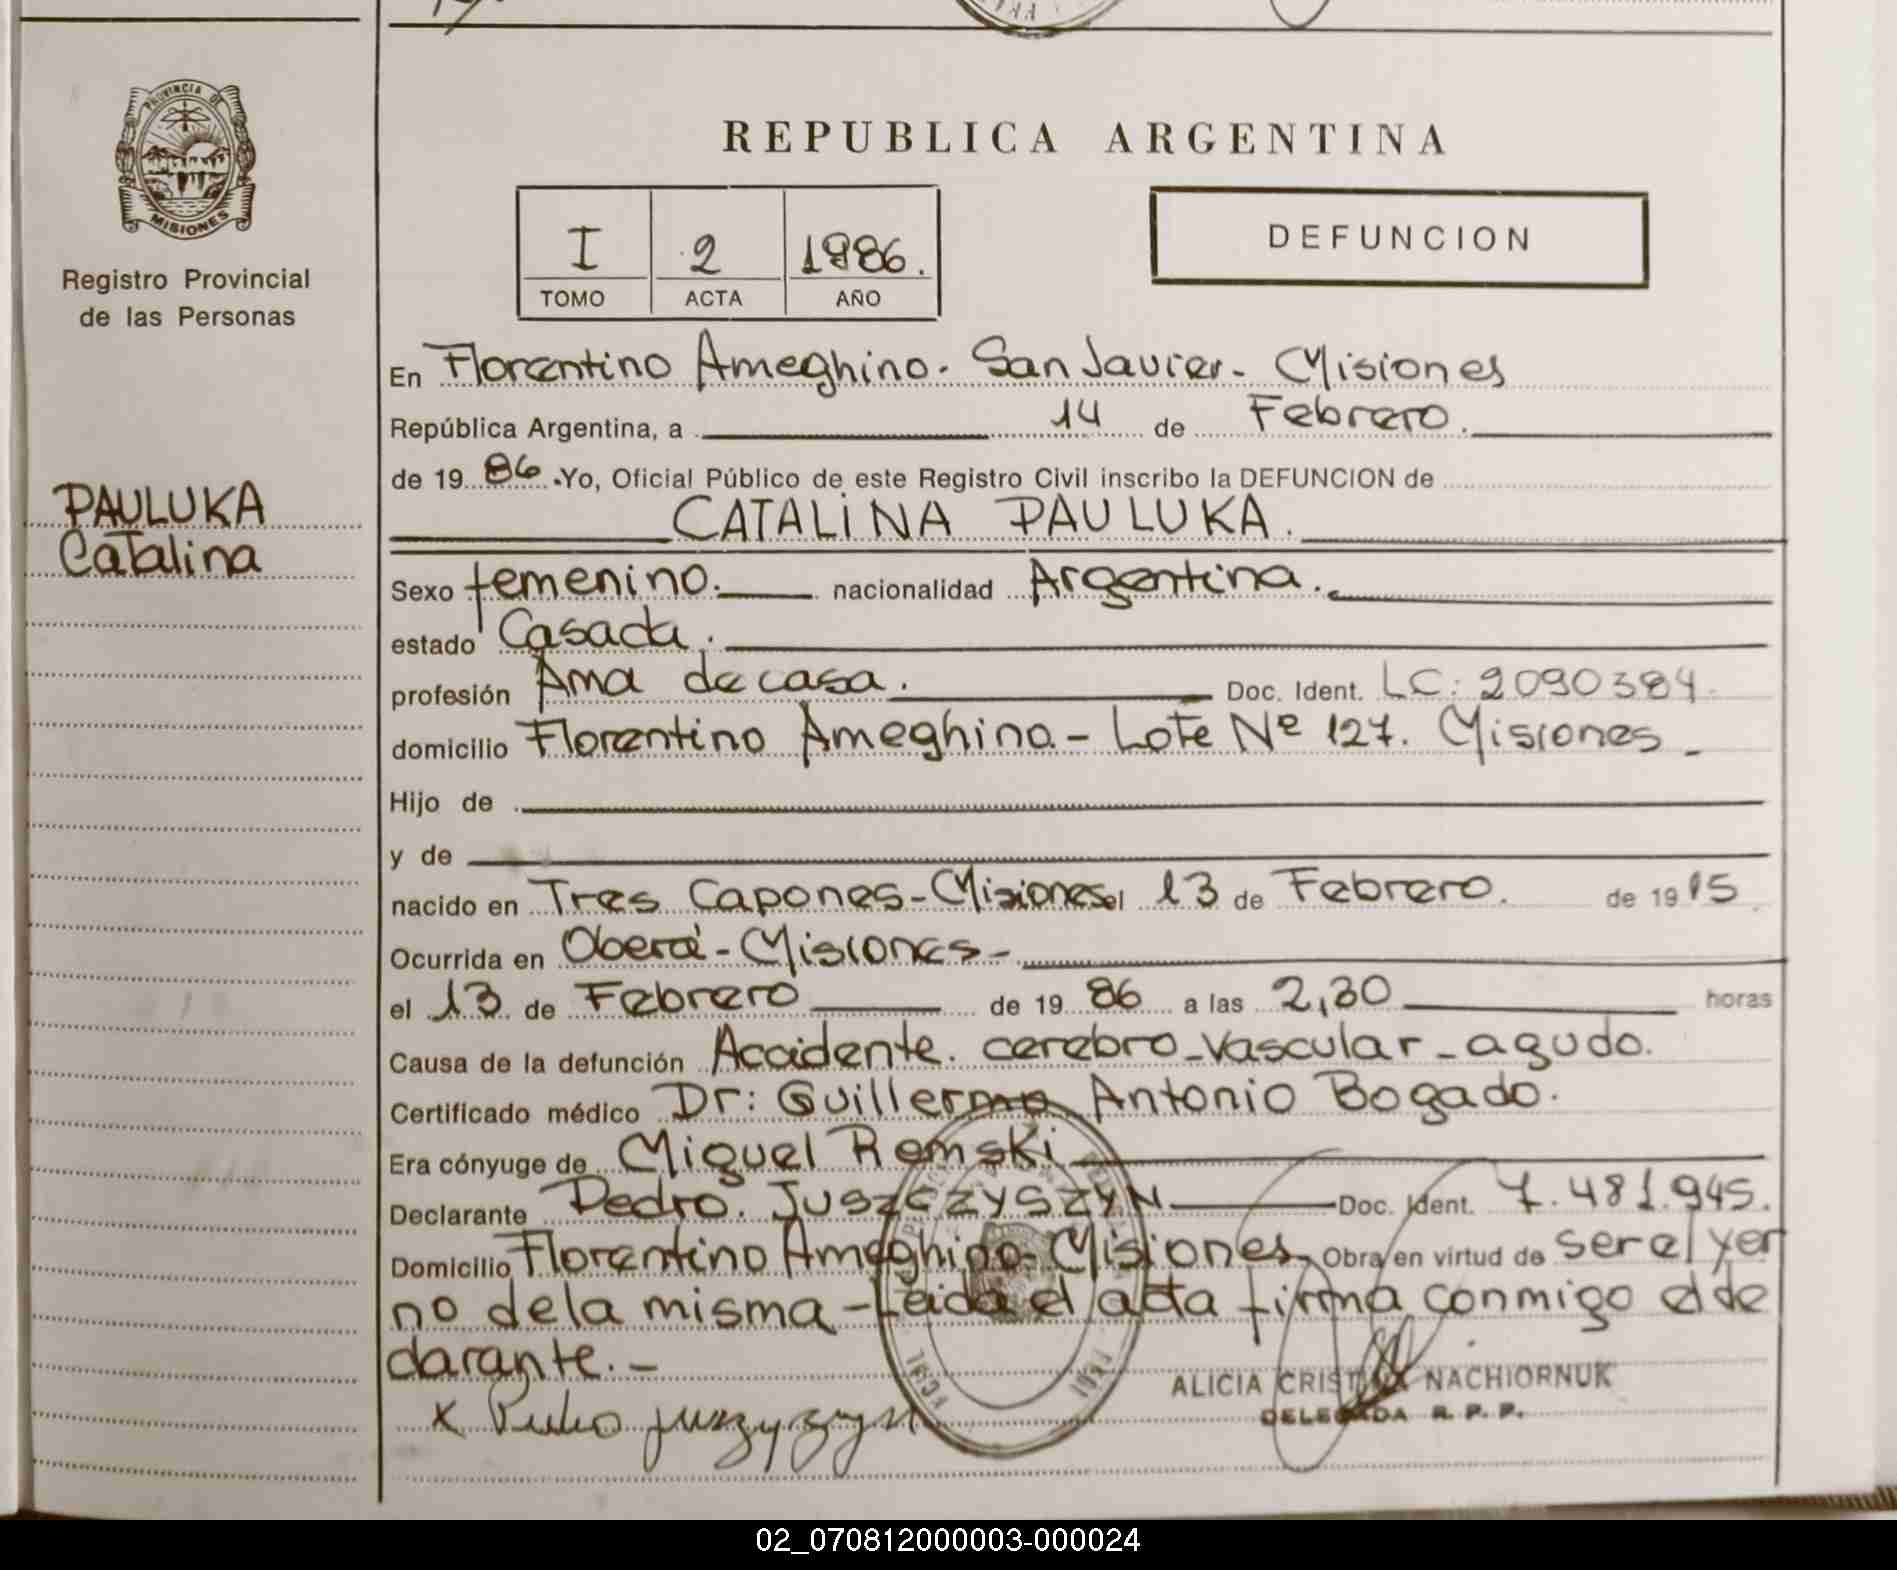 PROVINCIA DE
MISIONES
Registro Provincial
de las Personas
PAULUKA
Catalina
REPUBLICA ARGENTINA
I 2 1986.
TOMO ACTA AÑO
DEFUNCION
En Florentino Ameghino. San Javier - Misiones
República Argentina, a 14 de Febrero.
de 19 86. Yo, Oficial Público de este Registro Civil inscribo la DEFUNCION de
CATALINA PAULUKA.
Sexo femenino. nacionalidad Argentina.
estado Casada.
profesión Ama de casa. Doc. Ident. LC: 2090384.
domicilio Florentino Ameghino - Lote Nº 127. Misiones -
Hijo de
y de
nacido en Tres Capones - Misiones el 13 de Febrero. de 19 15
Ocurrida en Oberá - Misiones -
el 13 de Febrero de 19 86 a las 2,30 horas
Causa de la defunción Accidente. cerebro-vascular - agudo.
Certificado médico Dr: Guillermo Antonio Bogado.
Era cónyuge de Miguel Remski
Declarante Pedro. JUSZCZYSZYN Doc. Ident. 7.481.945.
Domicilio Florentino Ameghino - Misiones. Obra en virtud de ser el yer
no de la misma - Leida el acta firma conmigo el de
clarante. -
x Pedro
ALICIA CRISTINA NACHIORNUK
DELEGADA R. P. P.
02_070812000003-000024